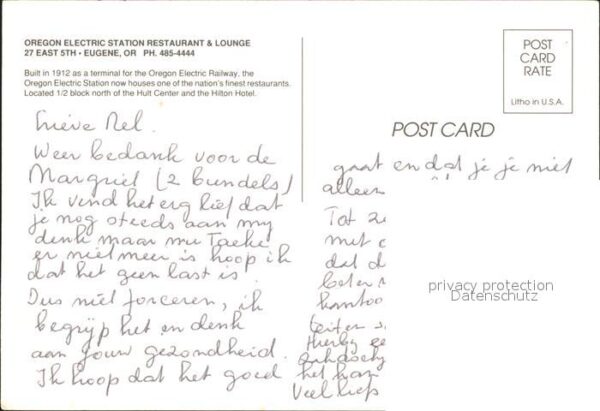 OREGON ELECTRIC STATION RESTAURANT & LOUNGE
27 EAST 5TH • EUGENE, OR PH. 485-4444
Built in 1912 as a terminal for the Oregon Electric Railway, the
Oregon Electric Station now houses one of the nation's finest restaurants.
Located 1/2 block north of the Hult Center and the Hilton Hotel.
POST
CARD
RATE
Litho in U.S.A.
POST CARD
Lieve Nel.
Weer bedank voor de
Margriet (2 bundels)
Ik vend het erg lief dat
je nog steeds aan my
denk maar nu Taeke
er niet meer is hoop ik
dat het geen last is.
Dus niet forceren, ik
begrijp het en denk
aan jouw gezondheid.
Ik hoop dat het goed
gaat en dat je je niet
alleen
Tot
met
dat
beter
kantoo
Hierby
het
Veel liefs
privacy protection
Datenschutz